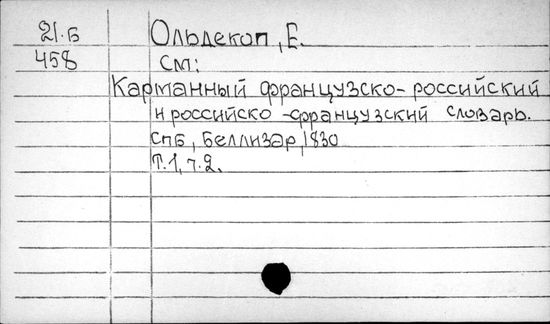 21.Б Ольдекоп, Е.
458 См:
Карманный французско-российский
и российско-французский словарь.
Спб, Беллизар, 1830
Т.1, ч.2.